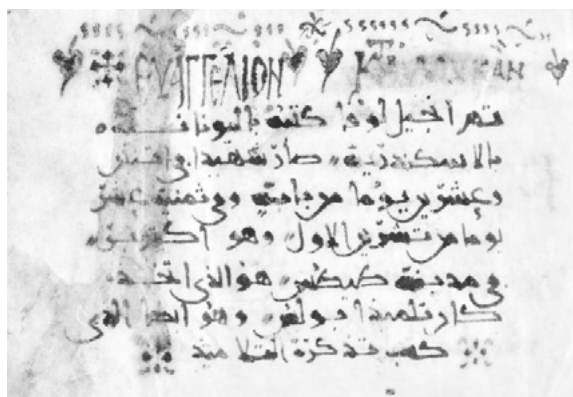 ΕΥΑΓΓΕΛΙΟΝ ΚΤ ΛΟΥΚΑΝ
تم انجيل لوقا كتبه باليونانيه
بالاسكندرية صار شهيدا في اثنين
وعشرين يوما من بابه وفي ثمنية عشر
يوما من تشرين الاول وهو
في مدينة هو الذي
كان تلميذا لبولس وهو ايضا الذي
كتب تذكرة التلاميذ